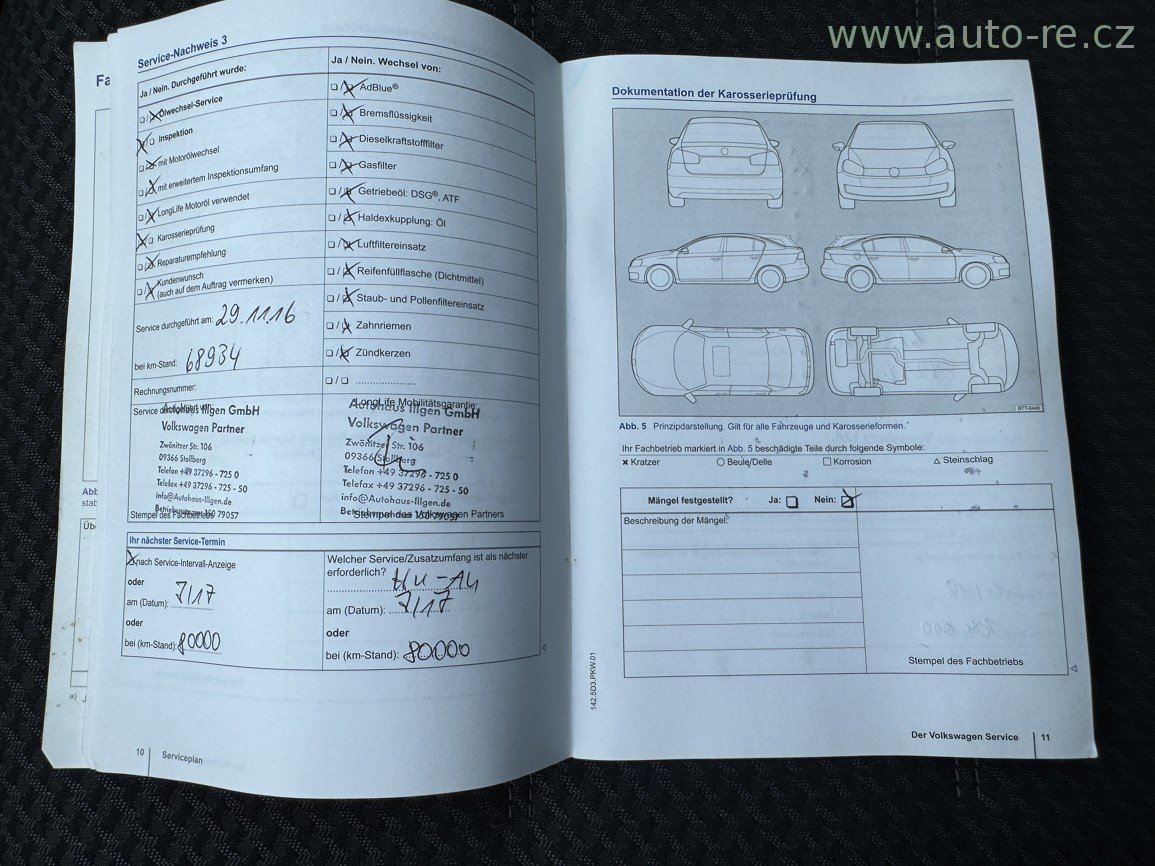 www.auto-re.cz
Service-Nachweis 3
Ja / Nein. Durchgeführt wurde:
Ölwechsel-Service
Inspektion
mit Motorölwechsel
mit erweitertem Inspektionsumfang
LongLife Motoröl verwendet
Karosserieprüfung
Reparaturempfehlung
Kundenwunsch
(auch auf dem Auftrag vermerken)
Service durchgeführt am: 29.11.16
bei km-Stand: 68934
Rechnungsnummer:
Ja / Nein. Wechsel von:
AdBlue®
Bremsflüssigkeit
Dieselkraftstofffilter
Gasfilter
Getriebeöl: DSG®, ATF
Haldexkupplung: Öl
Luftfiltereinsatz
Reifenfüllflasche (Dichtmittel)
Staub- und Pollenfiltereinsatz
Zahnriemen
Zündkerzen
Service
Illgen GmbH
Volkswagen Partner
Zwönitzer Str. 106
09366 Stollberg
Telefon +49 37296 - 725 0
Telefax +49 37296 - 725 - 50
info@Autohaus-Illgen.de
79057
Stempel des Fachbetriebs
LongLife Mobilitätsgarantie:
Autohaus Illgen GmbH
Volkswagen Partner
Zwönitzer Str. 106
09366 Stollberg
Telefon +49 37296 - 725 0
Telefax +49 37296 - 725 - 50
info@Autohaus-Illgen.de
Stempel des Volkswagen Partners
Ihr nächster Service-Termin
nach Service-Intervall-Anzeige
oder
am (Datum): 7/17
oder
bei (km-Stand): 80000
Welcher Service/Zusatzumfang ist als nächster
erforderlich? HU-AU
am (Datum): 7/17
oder
bei (km-Stand): 80000
10 Serviceplan
Fa
Abb
stab
a) J
Dokumentation der Karosserieprüfung
BTT-0449
Abb. 5 Prinzipdarstellung. Gilt für alle Fahrzeuge und Karosserieformen.
Ihr Fachbetrieb markiert in Abb. 5 beschädigte Teile durch folgende Symbole:
Kratzer Beule/Delle Korrosion Steinschlag
Mängel festgestellt? Ja: Nein:
Beschreibung der Mängel:
Stempel des Fachbetriebs
142.5D3.PKW.01
Der Volkswagen Service 11